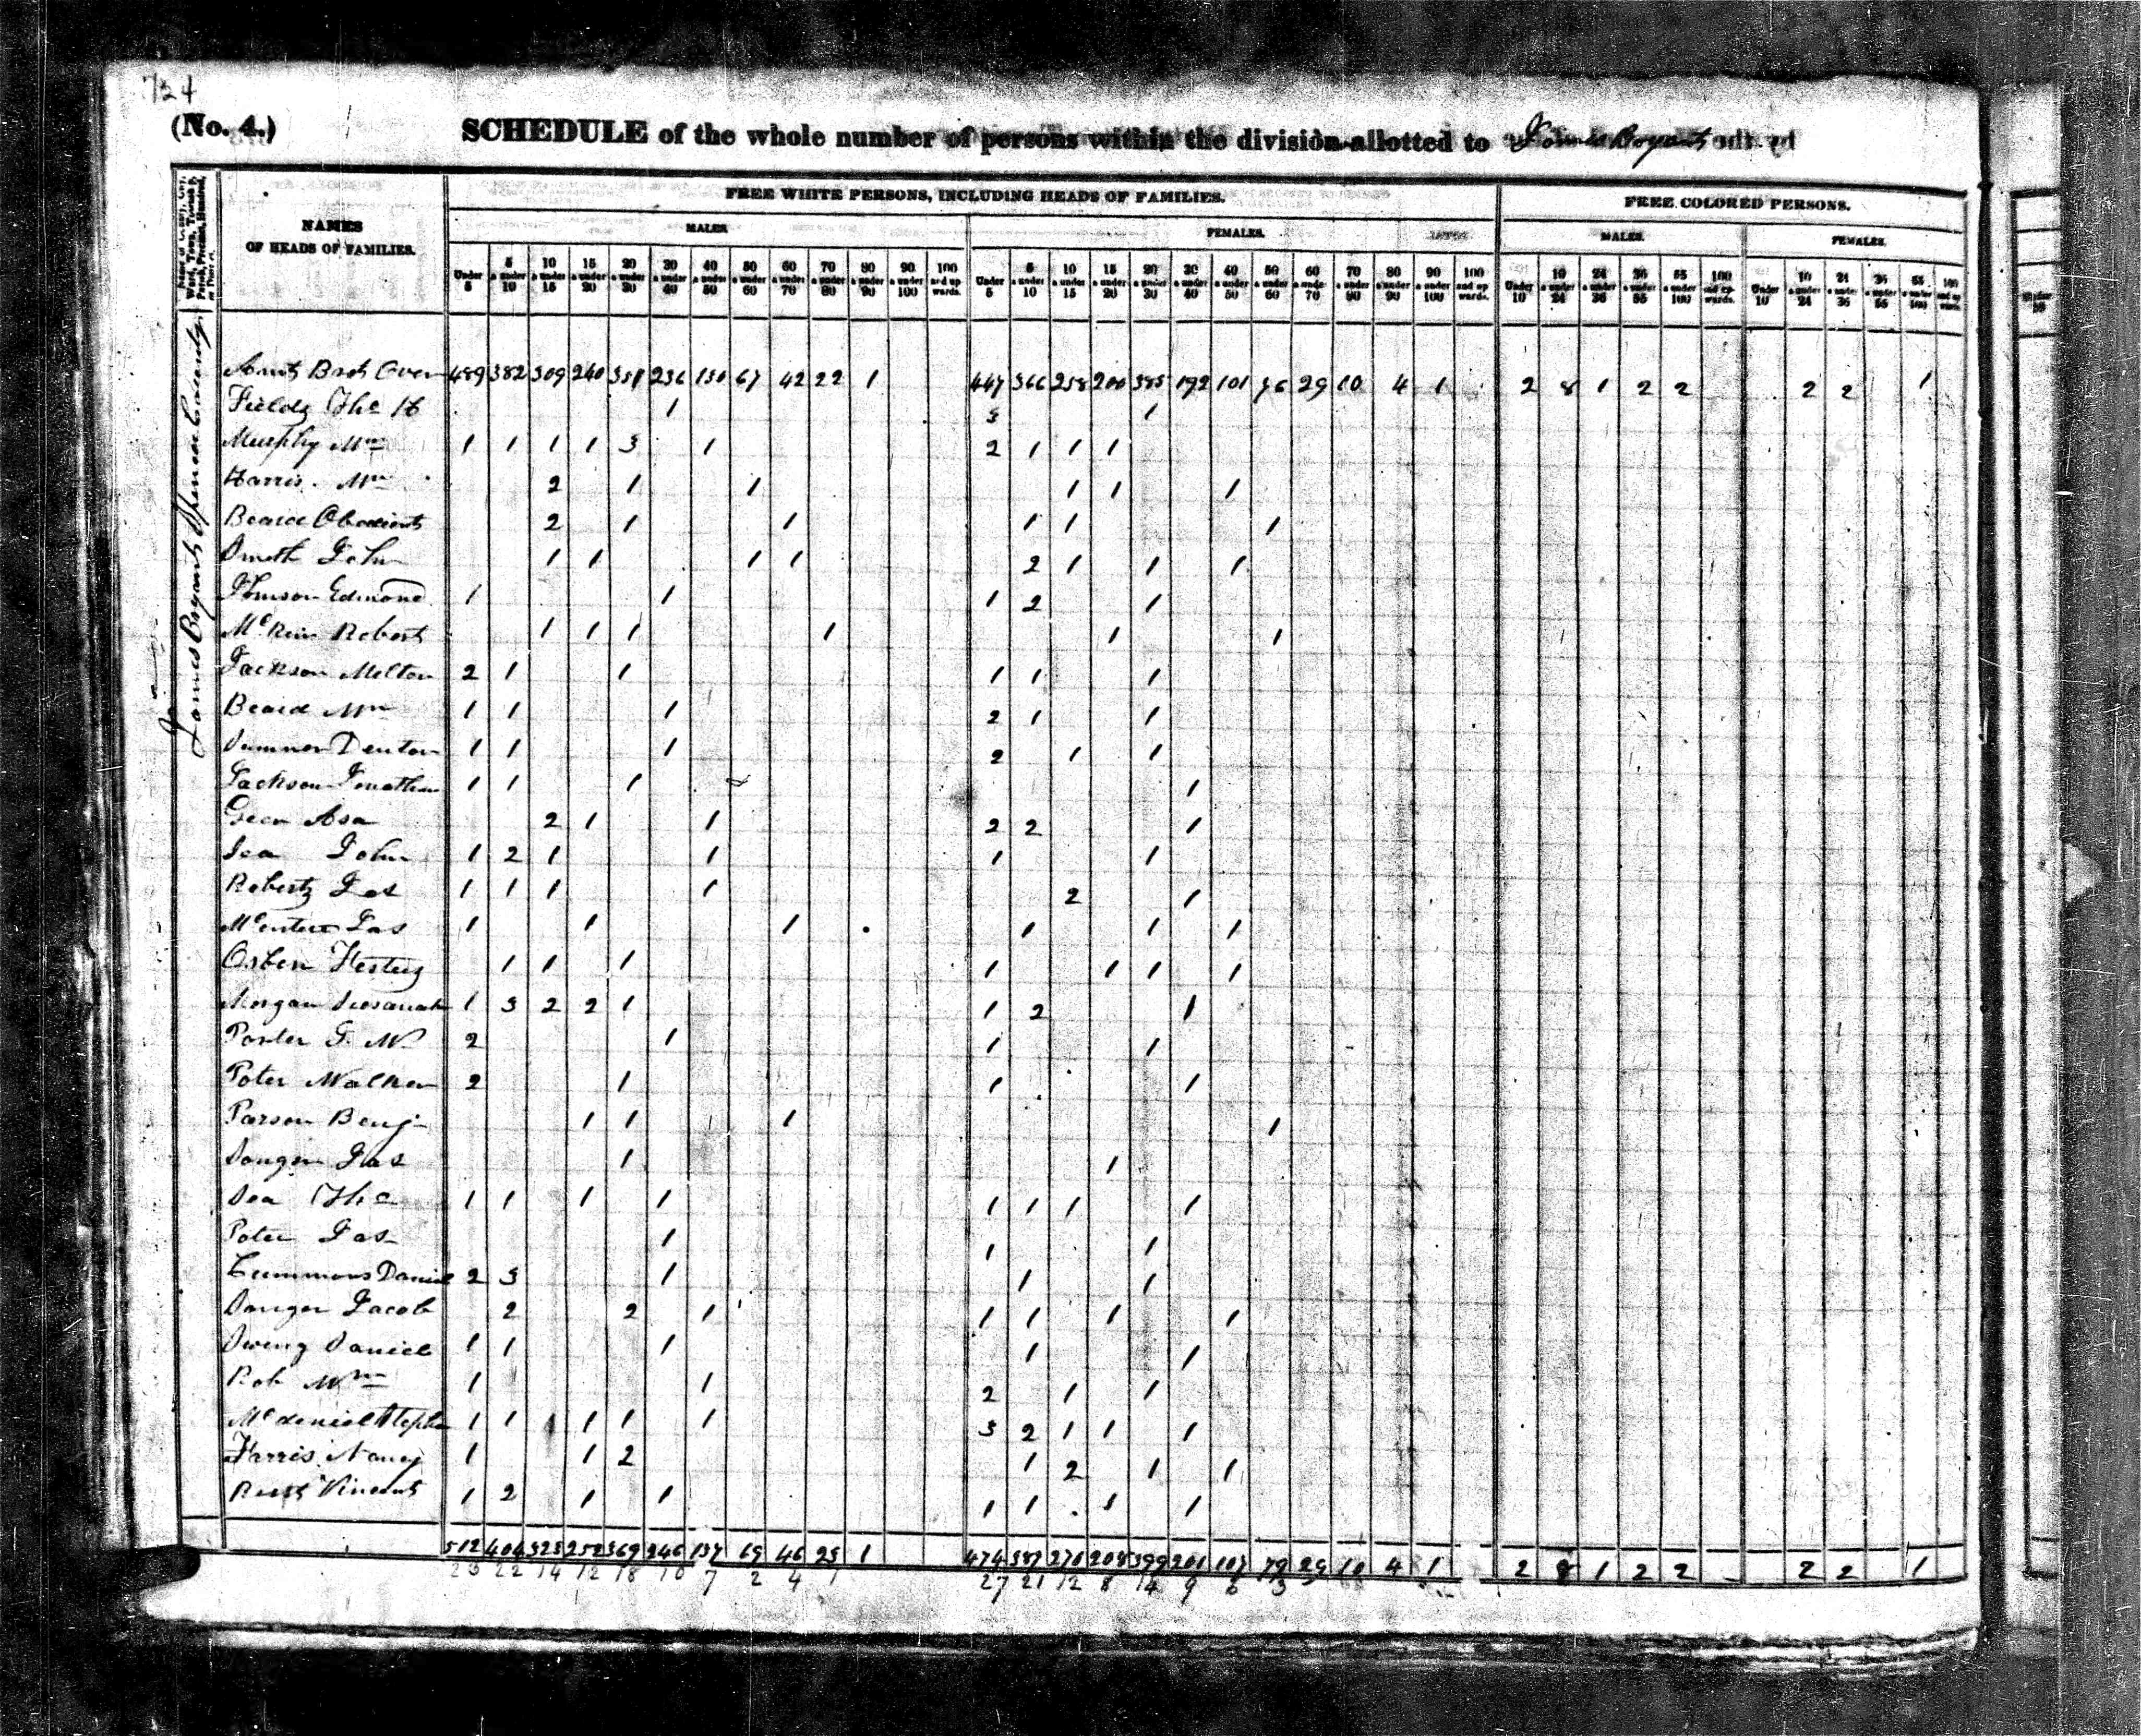 724
(No. 4.)
SCHEDULE of the whole number of persons within the division allotted to James Boyant
FREE WHITE PERSONS, INCLUDING HEADS OF FAMILIES.
FREE COLORED PERSONS.
NAMES
OF HEADS OF FAMILIES.
MALES
FEMALES.
MALES.
FEMALES.
Under 5 | 5 & under 10 | 10 & under 15 | 15 & under 20 | 20 & under 30 | 30 & under 40 | 40 & under 50 | 50 & under 60 | 60 & under 70 | 70 & under 80 | 80 & under 90 | 90 & under 100 | 100 and up wards. | Under 5 | 5 & under 10 | 10 & under 15 | 15 & under 20 | 20 & under 30 | 30 & under 40 | 40 & under 50 | 50 & under 60 | 60 & under 70 | 70 & under 80 | 80 & under 90 | 90 & under 100 | 100 and up wards. | Under 10 | 10 & under 24 | 24 & under 36 | 36 & under 55 | 55 & under 100 | 100 and up wards. | Under 10 | 10 & under 24 | 24 & under 36 | 36 & under 55 | 55 & under 100 | 100 and up wards.
James Boyant Spencer County
Amt Brot Over 489 382 309 240 351 236 130 67 42 22 1 447 366 258 200 385 192 101 76 29 10 4 1 2 8 1 2 2 2 2 1
Fields Tho H 1 3 1
Murphy Wm 1 1 1 1 3 1 2 1 1 1
Harris Wm 2 1 1 1 1 1
Beard 2 1 1 1 1 1
Smith John 1 1 1 1 2 1 1 1
Edmond 1 1 1 2 1
Robert 1 1 1 1 1 1
Jackson Melton 2 1 1 1 1 1
Beard Wm 1 1 1 2 1 1
Sumner Denton 1 1 1 2 1 1
Jackson Jonathan 1 1 1 1
Asa 2 1 1 2 2 1
John 1 2 1 1 1 1
Roberts Jas 1 1 1 1 2 1
Jas 1 1 1 1 1 1
Osben 1 1 1 1 1 1 1
Morgan Susanah 1 3 2 2 1 1 2 1
Porter J. W 2 1 1 1
Poter Walker 2 1 1 1
Parson Benj 1 1 1 1
Jas 1 1
Tho 1 1 1 1 1 1 1 1
Poter Jas 1 1 1
Cummons Daniel 2 3 1 1 1
Jacob 2 2 1 1 1 1 1
Daniel 1 1 1 1 1
Rob Wm 1 1 2 1 1
Mcdeniel Stephen 1 1 1 1 1 1 3 2 1 1 1
Harris Nancy 1 1 2 1 2 1 1
Vincent 1 2 1 1 1 1 1 1
512 404 323 252 369 246 137 69 46 23 1 474 387 270 208 399 201 107 79 29 10 4 1 2 8 1 2 2 2 2 1
23 22 14 12 18 10 7 2 4 1 27 21 12 8 14 9 6 3